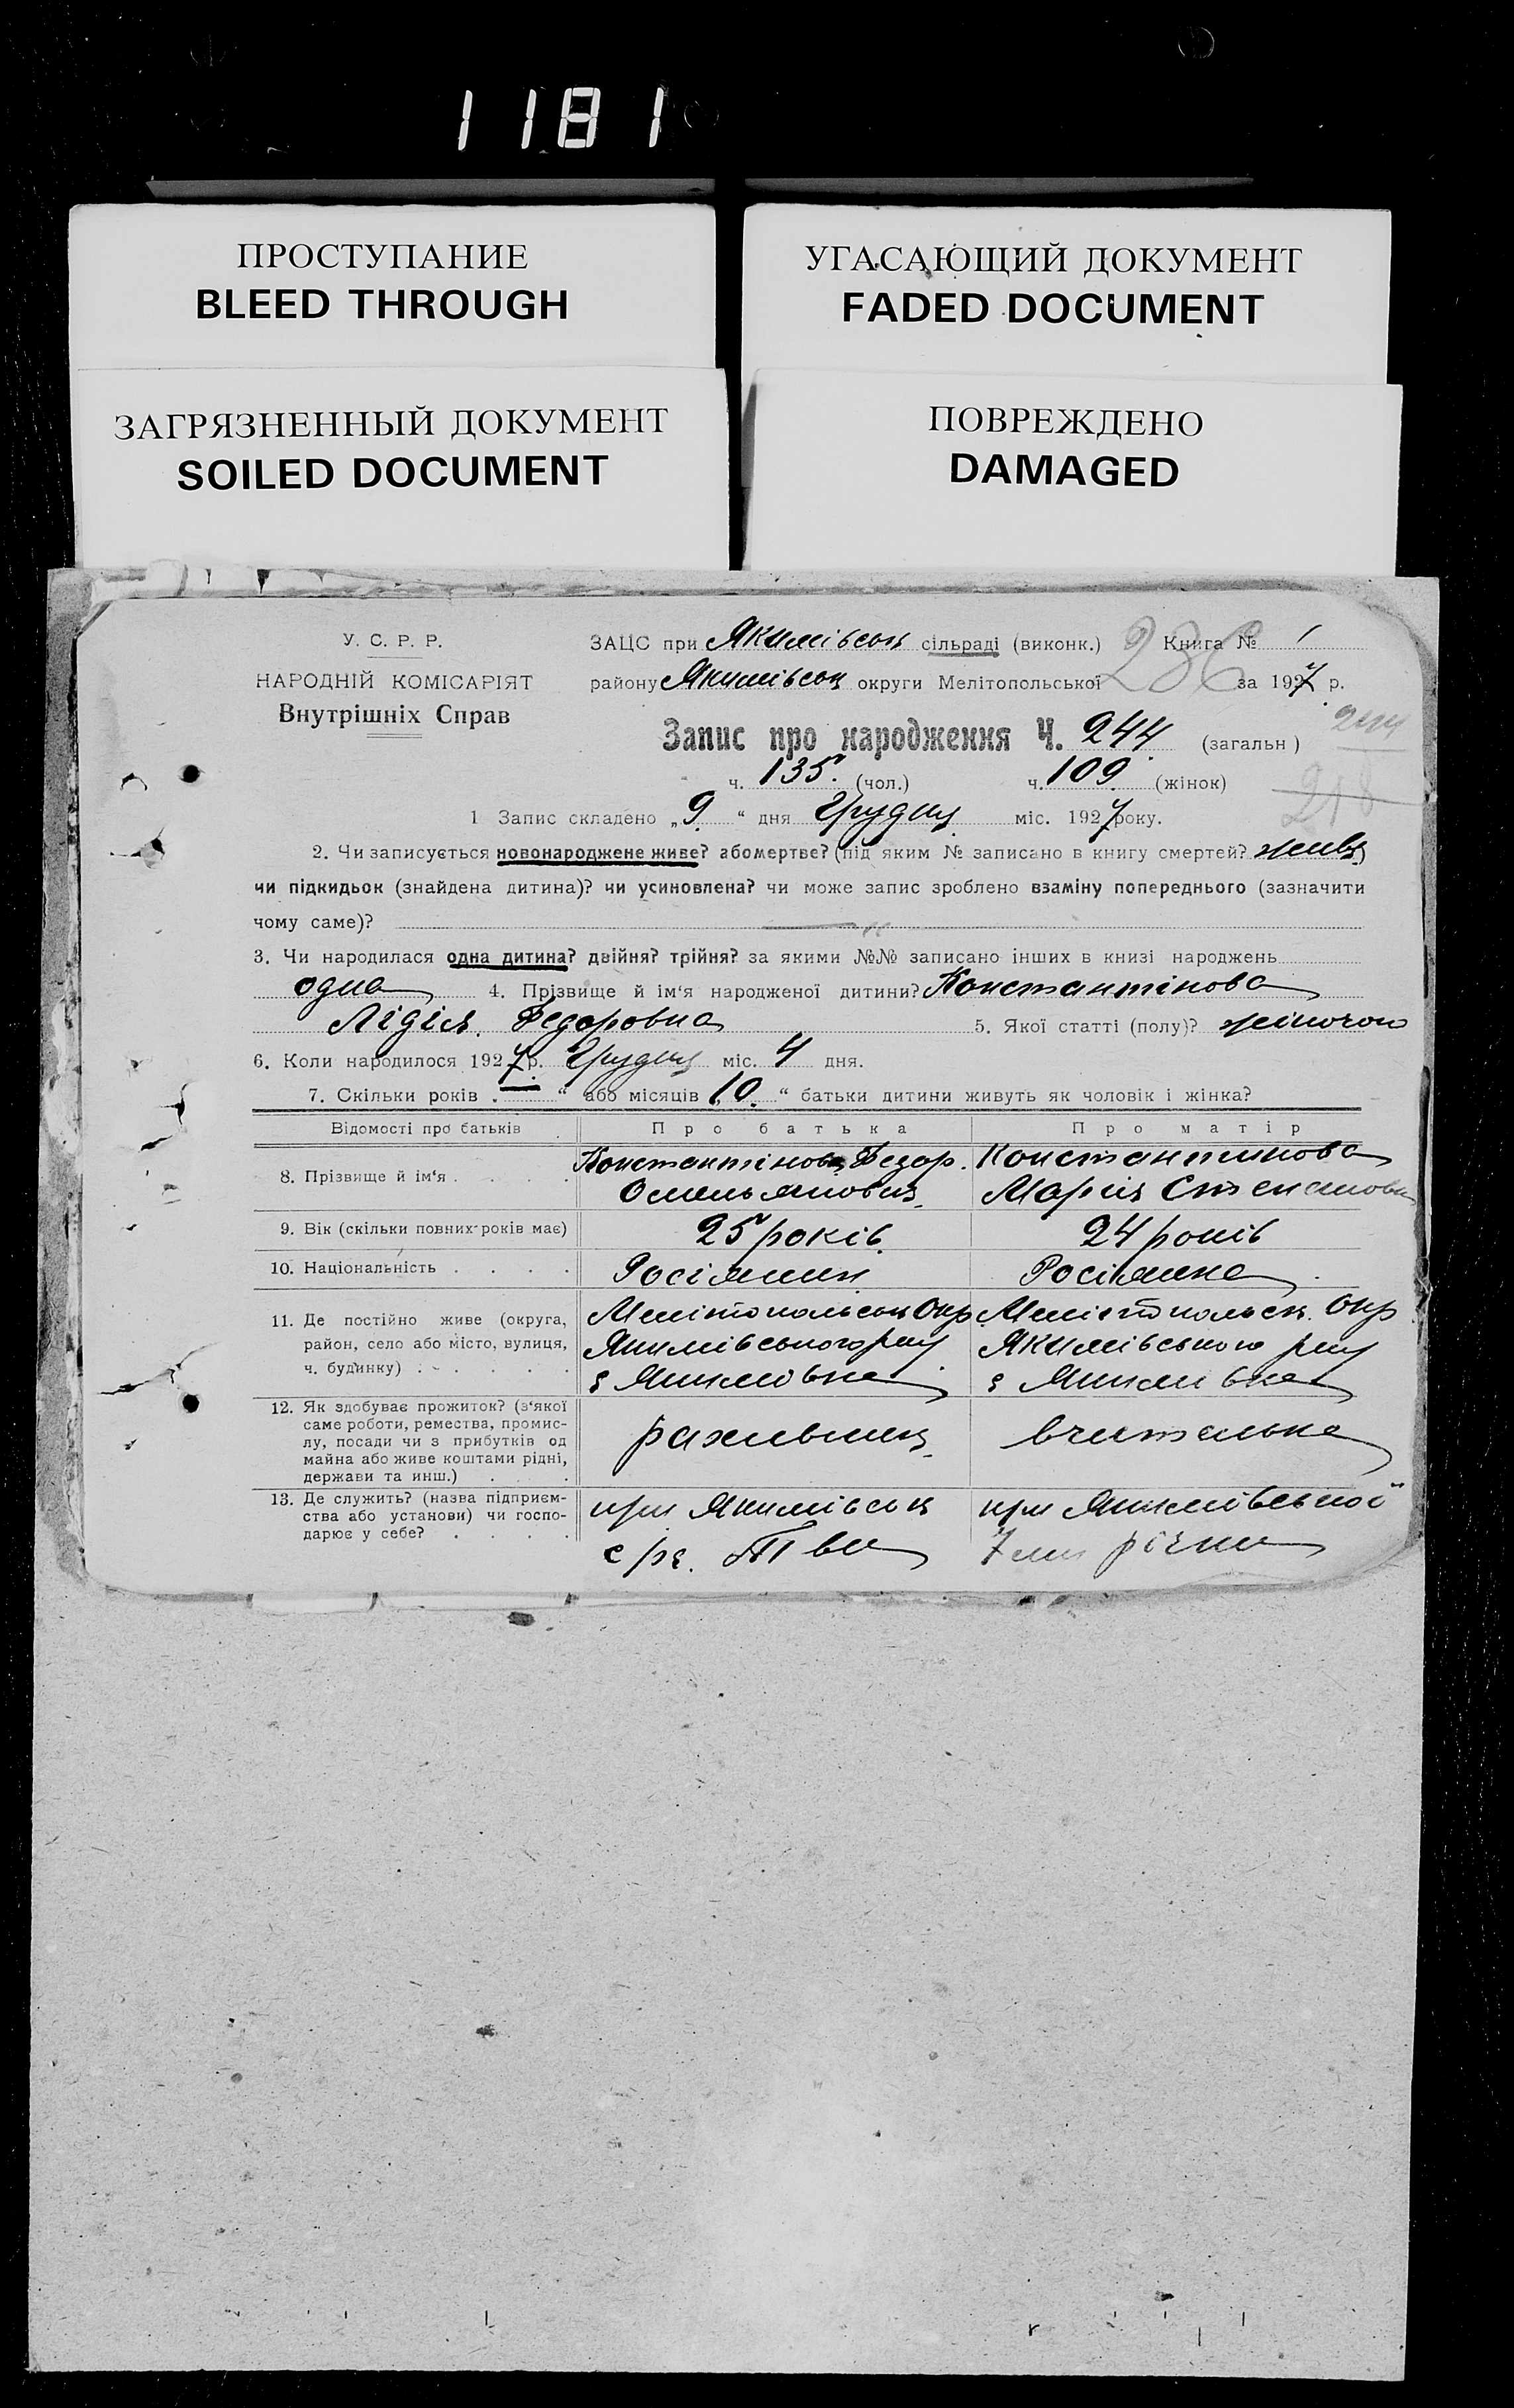 1181
ПРОСТУПАНИЕ
BLEED THROUGH
УГАСАЮЩИЙ ДОКУМЕНТ
FADED DOCUMENT
ЗАГРЯЗНЕННЫЙ ДОКУМЕНТ
SOILED DOCUMENT
ПОВРЕЖДЕНО
DAMAGED
У. С. Р. Р.
НАРОДНІЙ КОМІСАРІЯТ
Внутрішніх Справ
ЗАЦС при Якимівськ сільраді (виконк.) 236 Книга № 1
району Якимівськ округи Мелітопольської за 1927 р.
Запис про народження Ч. 244 (загальн) 244
ч. 135. (чол.) ч. 109 (жінок)
218
1 Запис складено „9“ дня Грудня міс. 1927 року.
2. Чи записується новонароджене живе? або мертве? (під яким № записано в книгу смертей? живе)
чи підкидьок (знайдена дитина)? чи усиновлена? чи може запис зроблено взаміну попереднього (зазначити
чому саме)?
3. Чи народилася одна дитина? двійня? трійня? за якими №№ записано інших в книзі народжень
одна 4. Прізвище й ім‘я народженої дитини? Константінова
Лідія Федоровна 5. Якої статті (полу)? жіночою
6. Коли народилося 1927 р. Грудня міс. 4 дня.
7. Скільки років . “ або місяців „10“ батьки дитини живуть як чоловік і жінка?
Відомості про батьків Про батька Про матір
8. Прізвище й ім‘я . . . . Константінов Федор. Константинова
Омельянович Марія Степанов
9. Вік (скільки повних років має) 25 років 24 років
10. Національність . . . . Росіянин Росіянка
11. Де постійно живе (округа, район, село або місто, вулиця, ч. будинку) . . . . .
Мелітопольськ Окр Мелітопольськ. Окр
Якимівського рну Якимівського рну
с Якимівка с Якимівка
12. Як здобуває прожиток? (з‘якої
саме роботи, ремества, промис-
лу, посади чи з прибутків од
майна або живе коштами рідні,
держави та инш.) . . .
рахівник вчителька
13. Де служить? (назва підприєм-
ства або установи) чи госпо-
дарює у себе? . . . .
при Якимівськ при Якимівської
с/г. Т ва 7 ми річки